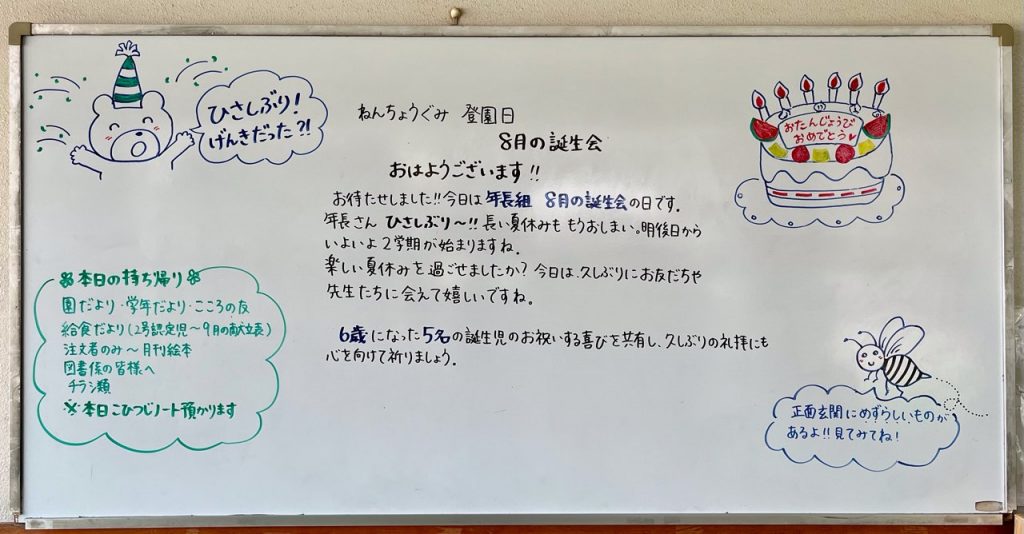 ひさしぶり!
げんきだった?!
ねんちょうぐみ 登園日
8月の誕生会
おはようございます!!
お待たせしました!!今日は 年長組 8月の誕生会の日です。
年長さん ひさしぶり〜!! 長い夏休みも もうおしまい。明後日から
いよいよ2学期が始まりますね。
楽しい夏休みを過ごせましたか? 今日は、久しぶりにお友だちや
先生たちに会えて嬉しいですね。
6歳になった5名の誕生児のお祝いする喜びを共有し、久しぶりの礼拝にも
心を向けて祈りましょう。
おたんじょうび
おめでとう♥
本日の持ち帰り
園だより・学年だより・こころの友
給食だより(2号認定児〜9月の献立表)
注文者のみ〜月刊絵本
図書係の皆様へ
チラシ類
※本日こひつじノート預かります
正面玄関にめずらしいものが
あるよ!!見てみてね!